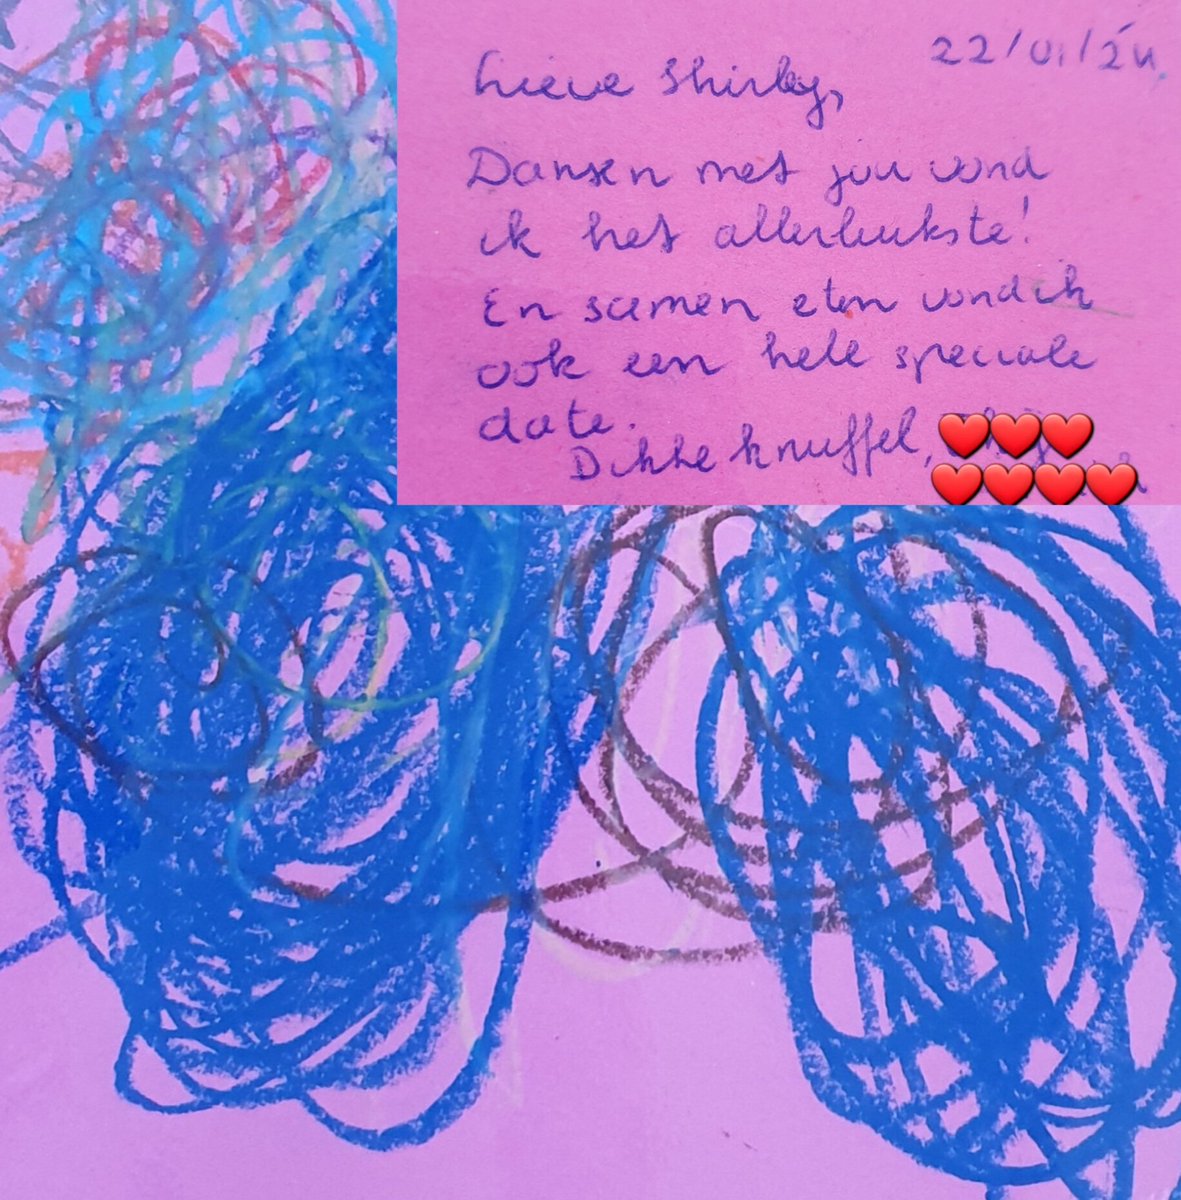 22/01/24
Lieve Shirley,
Dansen met jou vond
ik het allerleukste!
En samen eten vond ik
ook een hele speciale
date.
Dikke knuffel,